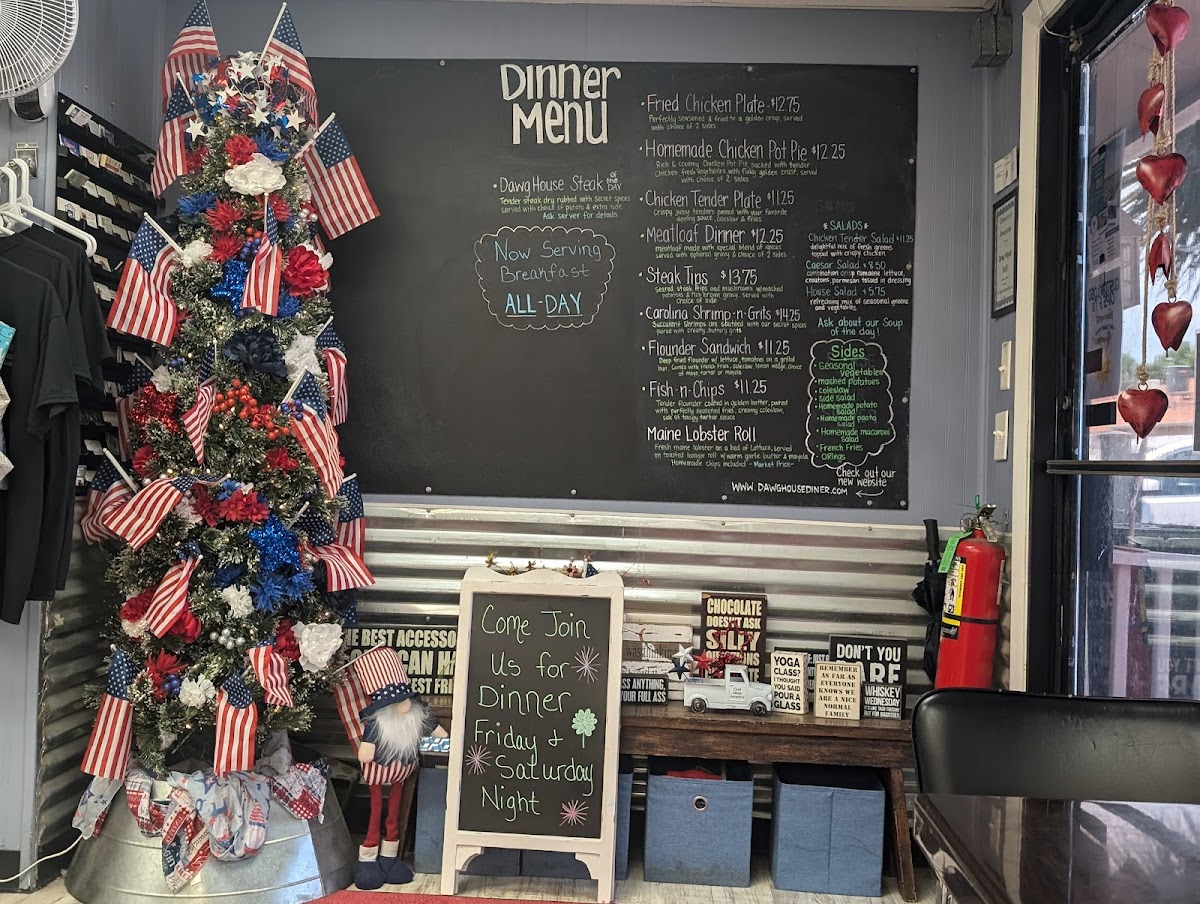 Dinner
Menu
• Dawg House Steak OF THE DAY
Tender steak dry rubbed with secret spices
served with choice of potato & extra side
Ask server for details
Now Serving
Breakfast
ALL-DAY
• Fried Chicken Plate - $12.75
Perfectly seasoned & fried to a golden crisp, served
with choice of 2 sides
• Homemade Chicken Pot Pie $12.25
Rich & creamy Chicken Pot Pie, packed with tender
chicken fresh vegetables, with flaky golden crust, served
with choice of 2 sides
• Chicken Tender Plate $11.25
Crispy juicy tenders paired with your favorite
dipping sauce, coleslaw & fries
• Meatloaf Dinner $12.25
meatloaf made with special blend of spices
served with optional gravy & choice of 2 sides
• Steak Tips $13.75
Seared steak tips and mushrooms w/mashed
potatoes & rich brown gravy. Served with
choice of side
• Carolina Shrimp-n-Grits $14.25
Succulent shrimps are sautéed with our secret spices
paired with creamy, buttery grits
• Flounder Sandwich $11.25
Deep fried flounder w/ lettuce, tomatoes on a grilled
bun. Comes with French fries, coleslaw, lemon wedge, choice
of mayo, tartar or mayola
• Fish-n-Chips $11.25
Tender flounder coated in golden batter, paired
with perfectly seasoned fries, creamy coleslaw,
side of tangy tartar sauce
Maine Lobster Roll
Fresh maine lobster on a bed of lettuce, served
on toasted hoagie roll w/ warm garlic butter & mayola
Homemade chips included - Market Price-
* SALADS *
Chicken Tender Salad $11.25
delightful mix of fresh greens
topped with crispy chicken
Caesar Salad $8.50
combination crisp romaine lettuce,
croutons, parmesan tossed in dressing
House Salad $5.75
refreshing mix of seasonal greens
and vegetables
Ask about our Soup
of the day!
Sides
• Seasonal
vegetables
• mashed potatoes
• coleslaw
• side salad
• Homemade potato
salad
• Homemade pasta
salad
• Homemade macaroni
salad
• French Fries
• O Rings
Check out our
new website
WWW.DAWGHOUSEDINER.COM
Come Join
Us for
Dinner
Friday &
Saturday
Night
THE BEST ACCESSO
CAN HA
EST FRI
CHOCOLATE
DOESN'T ASK
SILLY
YOGA
CLASS?
I THOUGHT
YOU SAID
POUR A
GLASS
REMEMBER
AS FAR AS
EVERYONE
KNOWS WE
ARE A NICE
NORMAL
FAMILY
DON'T YOU
RE
WHISKEY
WEDNESDAY